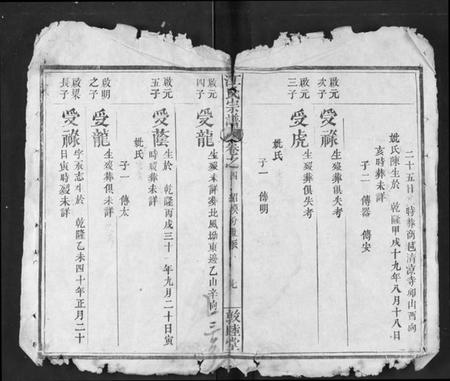 二十五日 時葬 清凉寺 山西向
妣氏陳生於 乾隆甲戌十九年八月十八日
亥時葬未詳
子二 傳器 傳安
啟元
次子
受祿 生歿葬俱失考
啟元
三子
受虎 生歿葬俱失考
妣氏
子一 傳明
江氏宗譜 卷之四
敦睦堂
啟元
四子
受龍 生歿未詳葬北風 東邊乙山辛向
啟元
五子
受蔭 生於 乾隆丙戌三十 年九月二十日寅
時歿葬未詳
妣氏
子一 傳太
啟明
之子
受龍 生歿葬俱未詳
啟梁
長子
受祿 字 志生於 乾隆乙未四十年正月二十
日寅時歿未詳